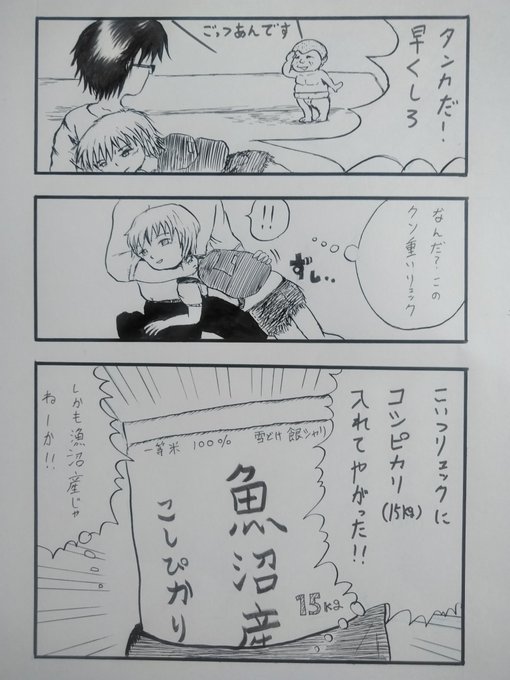 タンカだ!
早くしろ
ごっつあんです
なんだ?この
クソ重いリュック
!!
ずし..
こいつリュックに
コシピカリ
(15kg)
入れてやがった!!
一等米 100% 雪どけ 銀シャリ
魚沼産
こしぴかり
15kg
しかも魚沼産じゃ
ねーか!!